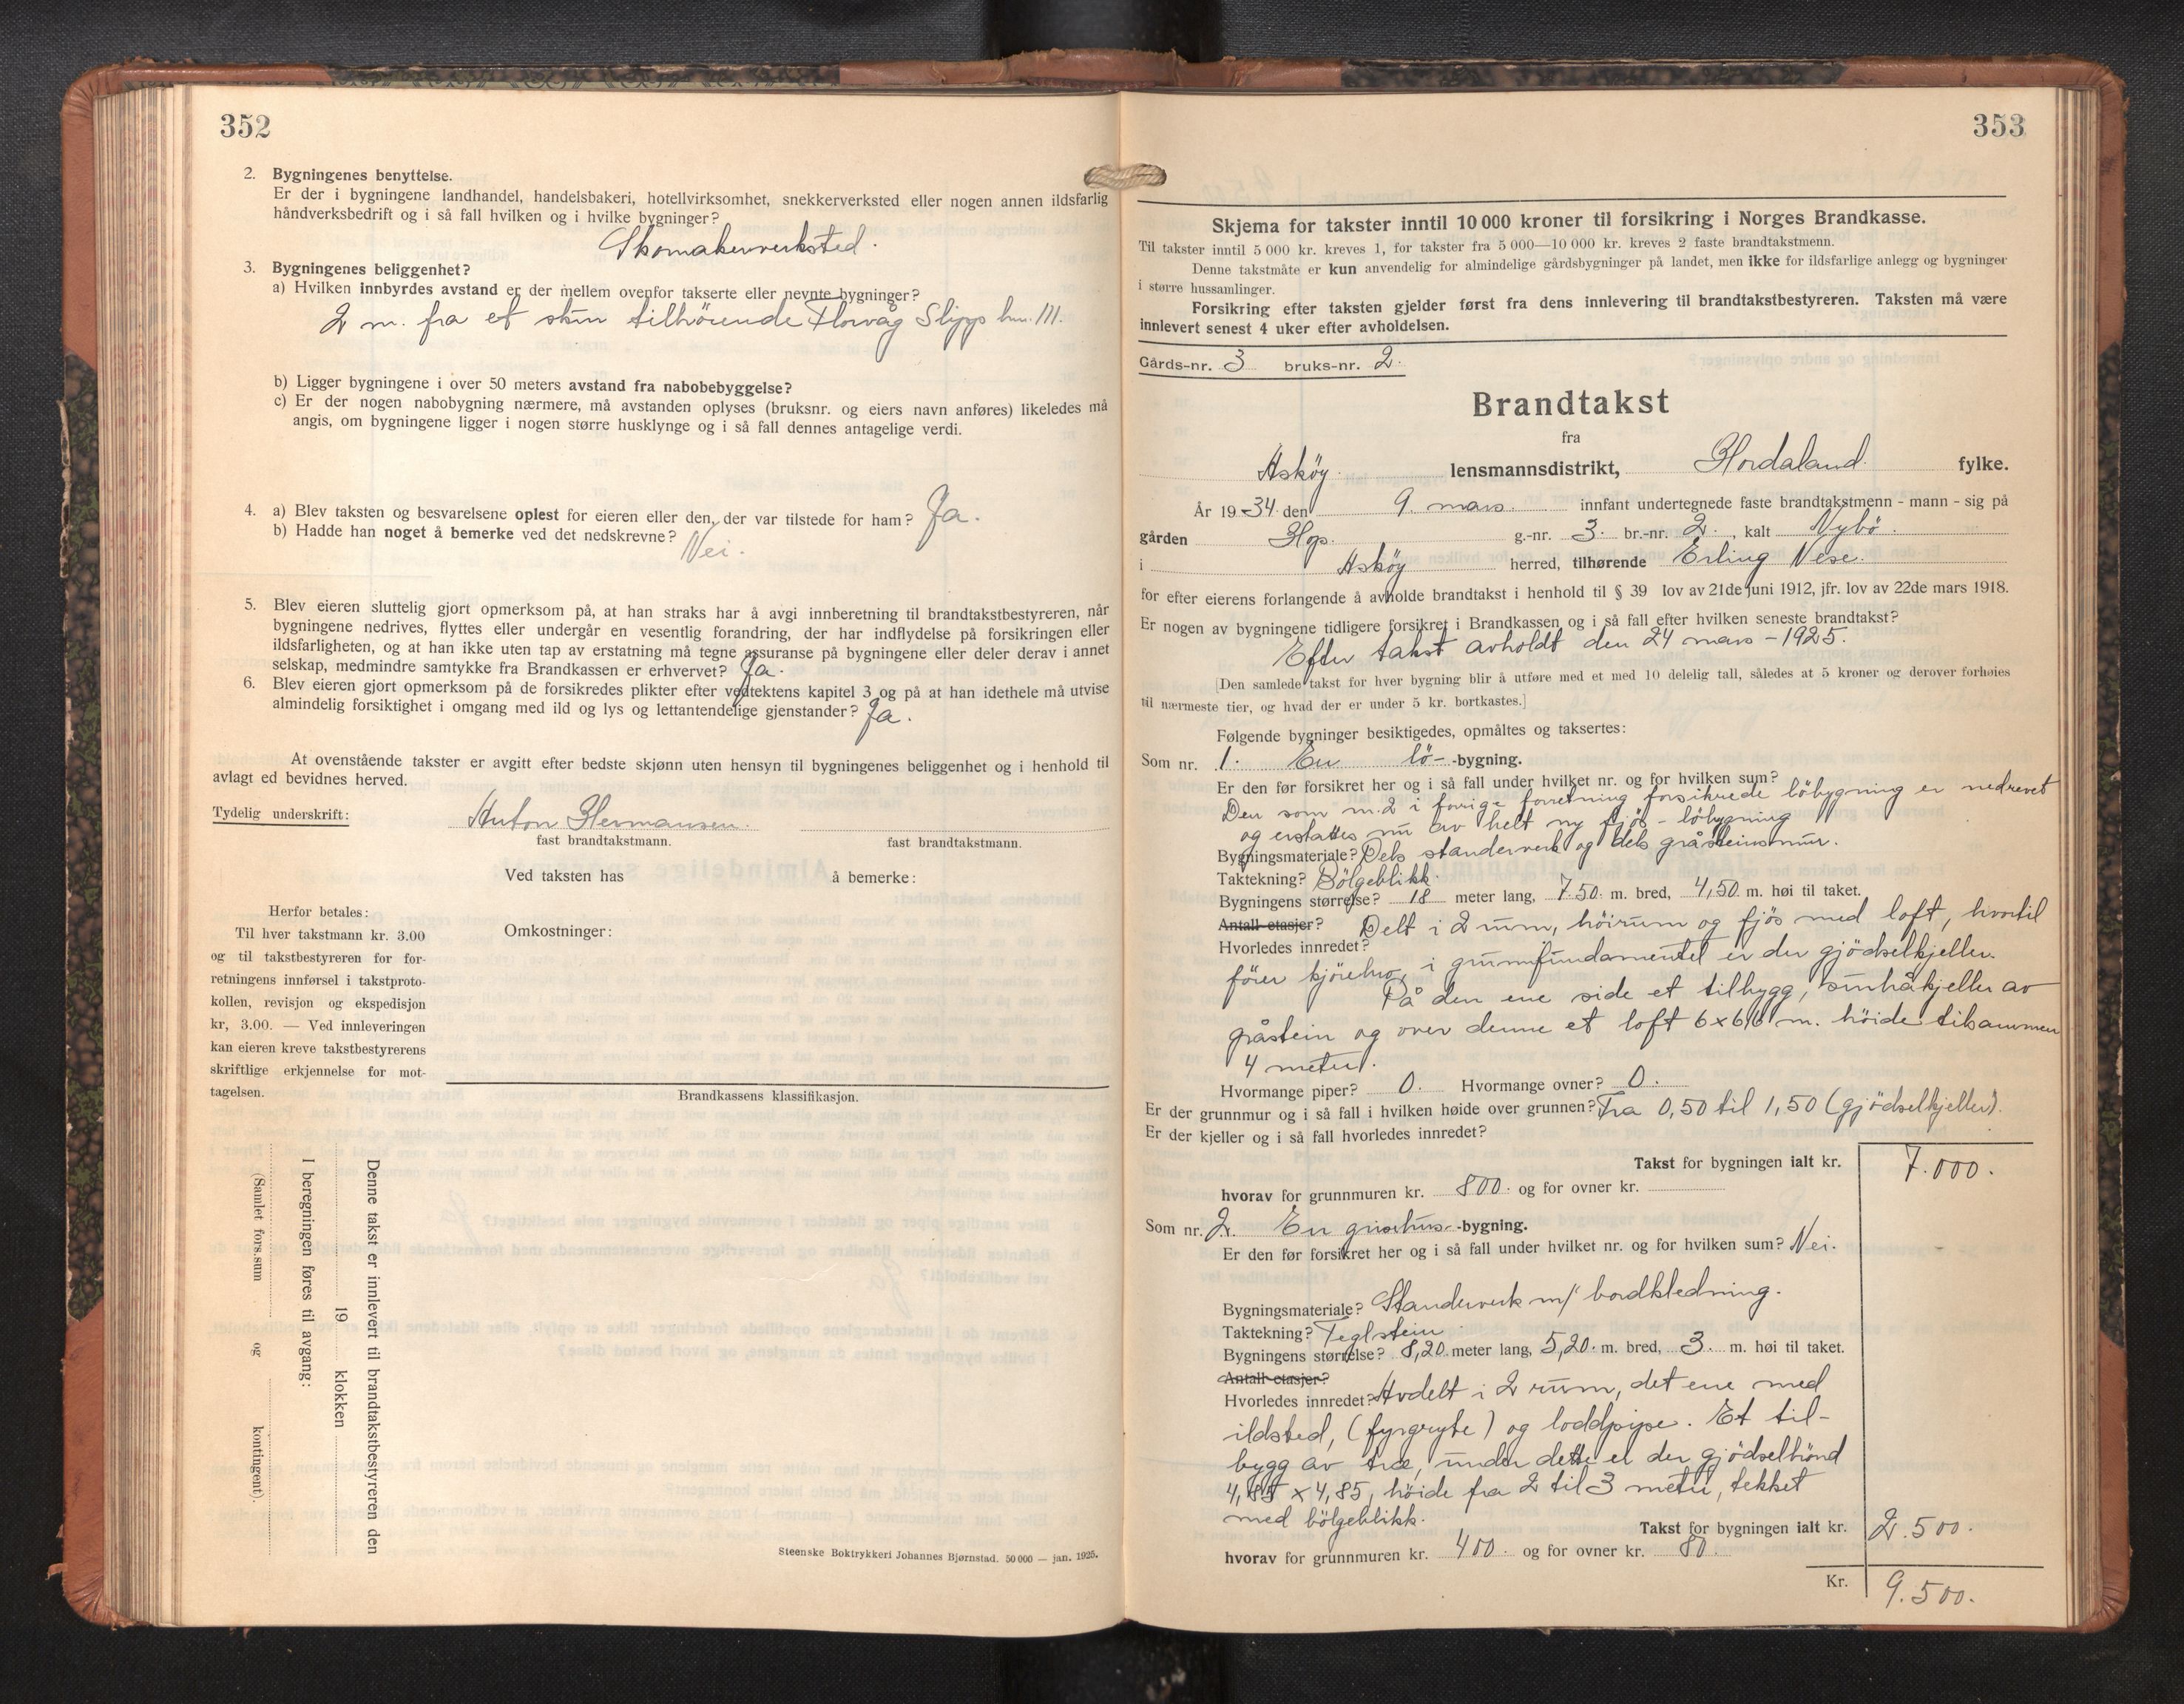 352
2. Bygningenes benyttelse.
Er der i bygningene landhandel, handelsbakeri, hotellvirksomhet, snekkerverksted eller nogen annen ildsfarlig
håndverksbedrift og i så fall hvilken og i hvilke bygninger?
Skomakerverksted.
3. Bygningenes beliggenhet?
a) Hvilken innbyrdes avstand er der mellem ovenfor takserte eller nevnte bygninger?
2 m. fra et skur tilhörende Florvåg Slipp
b) Ligger bygningene i over 50 meters avstand fra nabobebyggelse?
c) Er der nogen nabobygning nærmere, må avstanden oplyses (bruksnr. og eiers navn anføres) likeledes må
angis, om bygningene ligger i nogen større husklynge og i så fall dennes antagelige verdi.
4. a) Blev taksten og besvarelsene oplest for eieren eller den, der var tilstede for ham? Ja.
b) Hadde han noget å bemerke ved det nedskrevne? Nei.
5. Blev eieren sluttelig gjort opmerksom på, at han straks har å avgi innberetning til brandtakstbestyreren, når
bygningene nedrives, flyttes eller undergår en vesentlig forandring, der har indflydelse på forsikringen eller
ildsfarligheten, og at han ikke uten tap av erstatning må tegne assuranse på bygningene eller deler derav i annet
selskap, medmindre samtykke fra Brandkassen er erhvervet? Ja.
6. Blev eieren gjort opmerksom på de forsikredes plikter efter vedtektens kapitel 3 og på at han idethele må utvise
almindelig forsiktighet i omgang med ild og lys og lettantendelige gjenstander? Ja.
At ovenstående takster er avgitt efter bedste skjønn uten hensyn til bygningenes beliggenhet og i henhold til
avlagt ed bevidnes herved.
Tydelig underskrift: Anton Hermansen.
fast brandtakstmann. fast brandtakstmann.
Ved taksten has å bemerke:
Omkostninger:
Herfor betales:
Til hver takstmann kr. 3.00
og til takstbestyreren for for-
retningens innførsel i takstproto-
kollen, revisjon og ekspedisjon
kr, 3.00. — Ved innleveringen
kan eieren kreve takstbestyrerens
skriftlige erkjennelse for mot-
tagelsen.
Brandkassens klassifikasjon.
Denne takst er innlevert til brandtakstbestyreren den
19 klokken
I beregningen føres til avgang:
(Samlet fors.sum og kontingent).
Steenske Boktrykkeri Johannes Bjørnstad. 50 000 — jan. 1925.
353
Skjema for takster inntil 10 000 kroner til forsikring i Norges Brandkasse.
Til takster inntil 5 000 kr. kreves 1, for takster fra 5 000—10 000 kr. kreves 2 faste brandtakstmenn.
Denne takstmåte er kun anvendelig for almindelige gårdsbygninger på landet, men ikke for ildsfarlige anlegg og bygninger
i større hussamlinger.
Forsikring efter taksten gjelder først fra dens innlevering til brandtakstbestyreren. Taksten må være
innlevert senest 4 uker efter avholdelsen.
Gårds-nr. 3 bruks-nr. 2.
Brandtakst
fra
Asköy lensmannsdistrikt, Hordaland fylke.
År 19-34 den 9. mars innfant undertegnede faste brandtakstmenn - mann - sig på
gården Hop. g.-nr. 3. br.-nr. 2., kalt Nybö.
i Asköy herred, tilhørende Erling Nese.
for efter eierens forlangende å avholde brandtakst i henhold til § 39 lov av 21de juni 1912, jfr. lov av 22de mars 1918.
Er nogen av bygningene tidligere forsikret i Brandkassen og i så fall efter hvilken seneste brandtakst?
Efter takst avholdt den 24 mars - 1925.
[Den samlede takst for hver bygning blir å utføre med et med 10 delelig tall, således at 5 kroner og derover forhøies
til nærmeste tier, og hvad der er under 5 kr. bortkastes.]
Følgende bygninger besiktigedes, opmåltes og taksertes:
Som nr. 1. En lö- -bygning.
Er den før forsikret her og i så fall under hvilket nr. og for hvilken sum?
Den som nr. 2 i forrige forretning forsikrede löbygning er nedrevet
og erstattes nu av helt ny fjös - löbygning
Bygningsmateriale? Dels standerverk og dels gråsteinsmur.
Taktekning? Bölgeblikk.
Bygningens størrelse? 18 meter lang, 7.50. m. bred, 4,50. m. høi til taket.
Antall etasjer? Delt i 2 rum, höirum og fjös med loft, hvortil
Hvorledes innredet?
förer kjörebro, i grunnfundamentet er der gjödselkjeller.
På den ene side et tilbygg, surhåkjeller av
gråstein og over denne et loft 6 x 6,6 m. höide tilsammen
4 meter.
Hvormange piper? 0. Hvormange ovner? 0.
Er der grunnmur og i så fall i hvilken høide over grunnen? Fra 0,50 til 1,50 (gjödselkjeller).
Er der kjeller og i så fall hvorledes innredet?
Takst for bygningen ialt kr. 7.000.
hvorav for grunnmuren kr. 800. og for ovner kr.
Som nr. 2. En grisehus- -bygning.
Er den før forsikret her og i så fall under hvilket nr. og for hvilken sum? Nei.
Bygningsmateriale? Standerverk m/ bordkledning.
Taktekning? Teglstein
Bygningens størrelse? 8,20 meter lang, 5,20. m. bred, 3 m. høi til taket.
Antall etasjer?
Hvorledes innredet? Avdelt i 2 rum, det ene med
ildsted, (fyrgryte) og loddpipe. Et til-
bygg av træ, under dette er der gjödselbrönd
4,85 x 4,85, höide fra 2 til 3 meter, tekket
med bölgeblikk.
Takst for bygningen ialt kr. 2.500.
hvorav for grunnmuren kr. 400. og for ovner kr. 80.
Kr. 9.500.